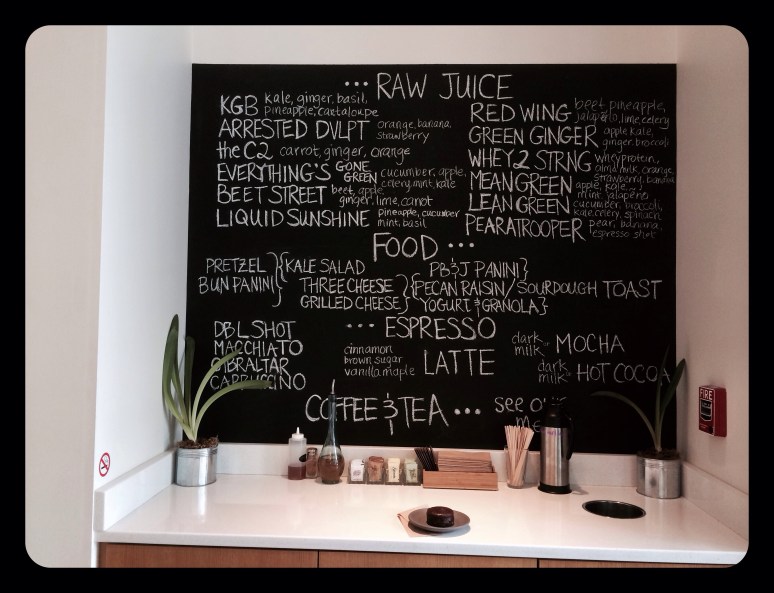 ••• RAW JUICE
KGB kale, ginger, basil, pineapple, cantaloupe
ARRESTED DVLPT orange, banana, strawberry
the C2 carrot, ginger, orange
EVERYTHING'S GONE GREEN cucumber, apple, celery, mint, kale
BEET STREET beet, apple, ginger, lime, carrot
LIQUID SUNSHINE pineapple, cucumber mint, basil
RED WING beet, pineapple, jalapeño, lime, celery
GREEN GINGER apple, kale, ginger, broccoli
WHEY 2 STRNG whey protein, almd milk, orange, strawberry, banana
MEAN GREEN apple, kale, mint, jalapeño
LEAN GREEN cucumber, broccoli, kale, celery, spinach
PEARATROOPER pear, banana, espresso shot
FOOD •••
PRETZEL BUN PANINI } { KALE SALAD
PB&J PANINI }
THREE CHEESE GRILLED CHEESE } { PECAN RAISIN / SOURDOUGH TOAST
YOGURT & GRANOLA }
••• ESPRESSO
DBL SHOT
MACCHIATO
GIBRALTAR
CAPPUCCINO
cinnamon
brown sugar
vanilla maple LATTE
dark milk MOCHA
dark milk HOT COCOA
COFFEE & TEA ••• see our
me
FIRE